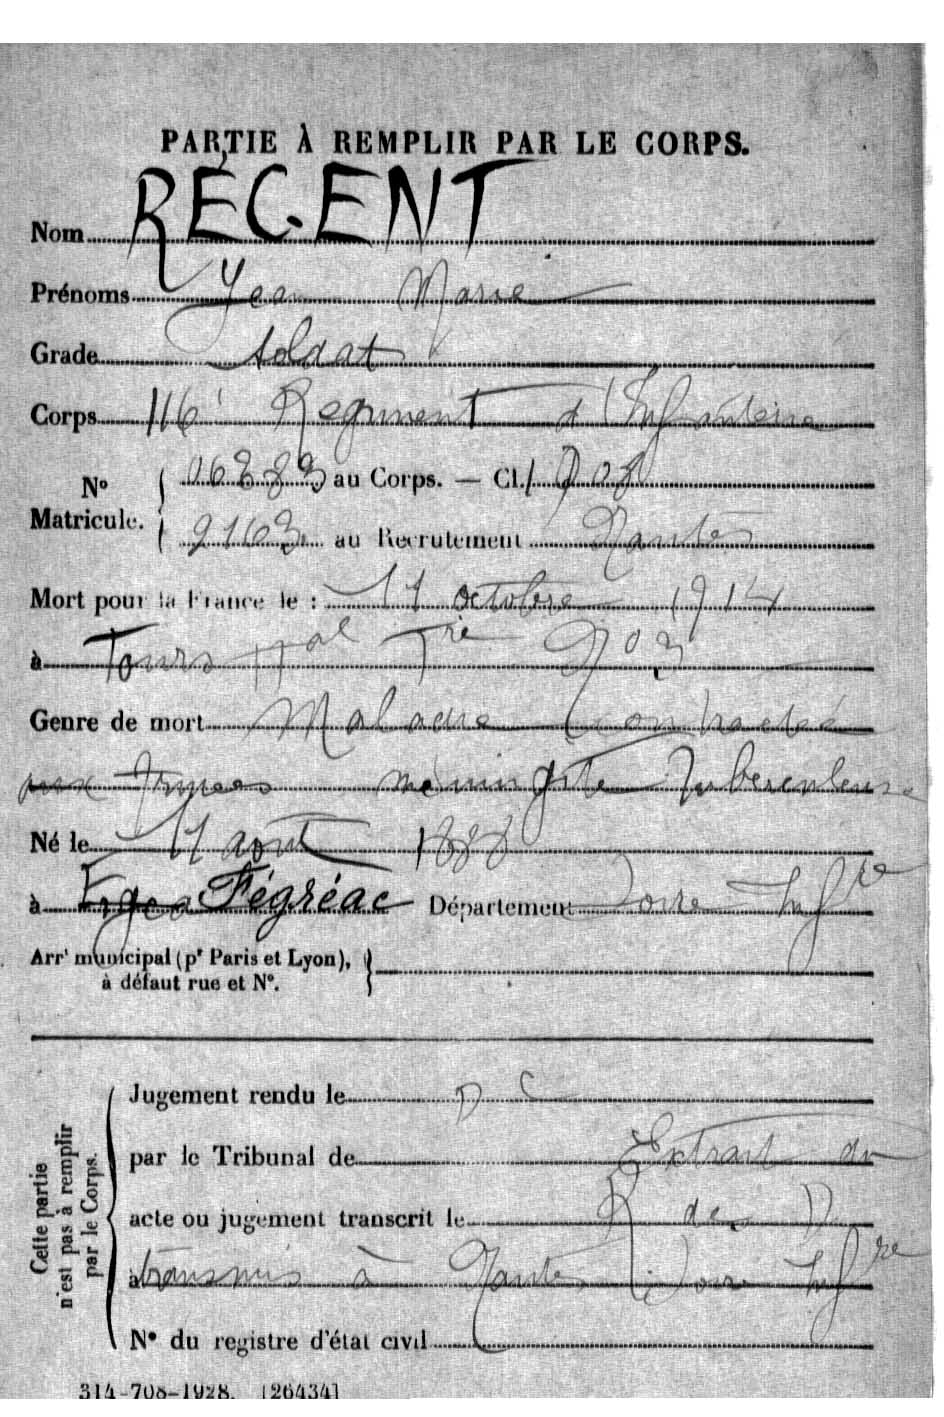 PARTIE À REMPLIR PAR LE CORPS.
Nom RÉGENT
Prénoms Jean Marie
Grade soldat
Corps 116e Régiment d'Infanterie
No Matricule. 06383 au Corps. — Cl. 1908
9163 au Recrutement Nantes
Mort pour la France le : 11 octobre 1914
à Tours Hal Tre No 3
Genre de mort Maladie Contractée
aux Armées méningite Tuberculeuse
Né le 11 août 1888
à Fégréac Département Loire Infre
Arrt municipal (pr Paris et Lyon), à défaut rue et No.
Cette partie n'est pas à remplir par le Corps.
Jugement rendu le D C
par le Tribunal de Extrait du
acte ou jugement transcrit le R des D
à transmis à Nantes Loire Infre
No du registre d'état civil
314-708-1928. [26434]